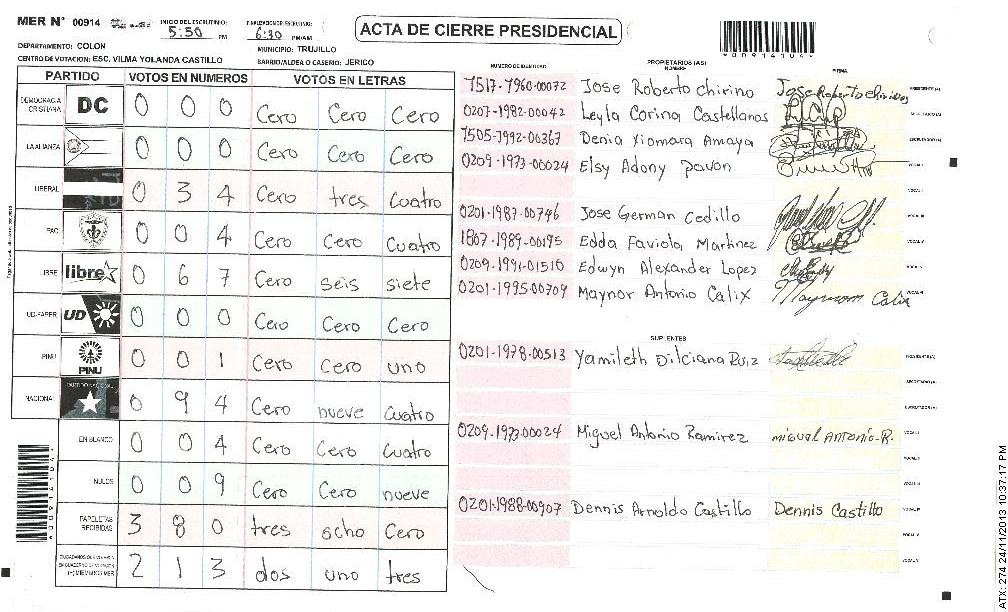 MER N° 00914
INICIO DEL ESCRUTINIO: 5:50 PM
FINALIZACION DEL ESCRUTINIO: 6:30 PM/AM
ACTA DE CIERRE PRESIDENCIAL
*00914104*
DEPARTAMENTO: COLON
MUNICIPIO: TRUJILLO
CENTRO DE VOTACION: ESC. VILMA YOLANDA CASTILLO
BARRIO/ALDEA O CASERIO: JERICO
PARTIDO VOTOS EN NUMEROS VOTOS EN LETRAS
DEMOCRACIA CRISTIANA DC 0 0 0 Cero Cero Cero
LA ALIANZA 0 0 0 Cero Cero Cero
LIBERAL 0 3 4 Cero tres cuatro
PAC 0 0 4 Cero Cero Cuatro
LIBRE libre 0 6 7 Cero seis siete
UD-FAPER UD 0 0 0 Cero Cero Cero
PINU PINU 0 0 1 Cero Cero uno
NACIONAL PARTIDO NACIONAL 0 9 4 Cero nueve Cuatro
EN BLANCO 0 0 4 Cero Cero Cuatro
NULOS 0 0 9 Cero Cero nueve
PAPELETAS RECIBIDAS 3 8 0 tres ocho Cero
CIUDADANOS QUE VOTARON EN CUADERNO DE VOTACION (+) MIEMBROS MER 2 1 3 dos uno tres
*00914104*
NUMERO DE IDENTIDAD PROPIETARIOS (AS) NOMBRE FIRMA
1517-1960-00072 Jose Roberto Chirino Jose Roberto Chirinos PRESIDENTE (A)
0207-1982-00042 Leyla Corina Castellanos SECRETARIO (A)
1505-1992-00367 Denia Xiomara Amaya ESCRUTADOR (A)
0209-1973-00024 Elsy Adony pavon VOCAL I
VOCAL II
0201-1987-00746 Jose German Cedillo VOCAL III
1807-1989-00195 Edda Faviola Martinez VOCAL IV
0209-1991-01510 Edwyn Alexander Lopez VOCAL V
0201-1995-00709 Maynor Antonio Calix Calix VOCAL VI
SUPLENTES
0201-1978-00513 Yamileth Dilciana Ruiz PRESIDENTE (A)
SECRETARIO (A)
ESCRUTADOR (A)
0209-1973-00024 Miguel Antonio Ramirez miguel ANTONIO-R. VOCAL I
VOCAL II
VOCAL III
0201-1988-00907 Dennis Arnoldo Castillo Dennis Castillo VOCAL IV
VOCAL V
ATX: 274 24/11/2013 10:37:17 PM